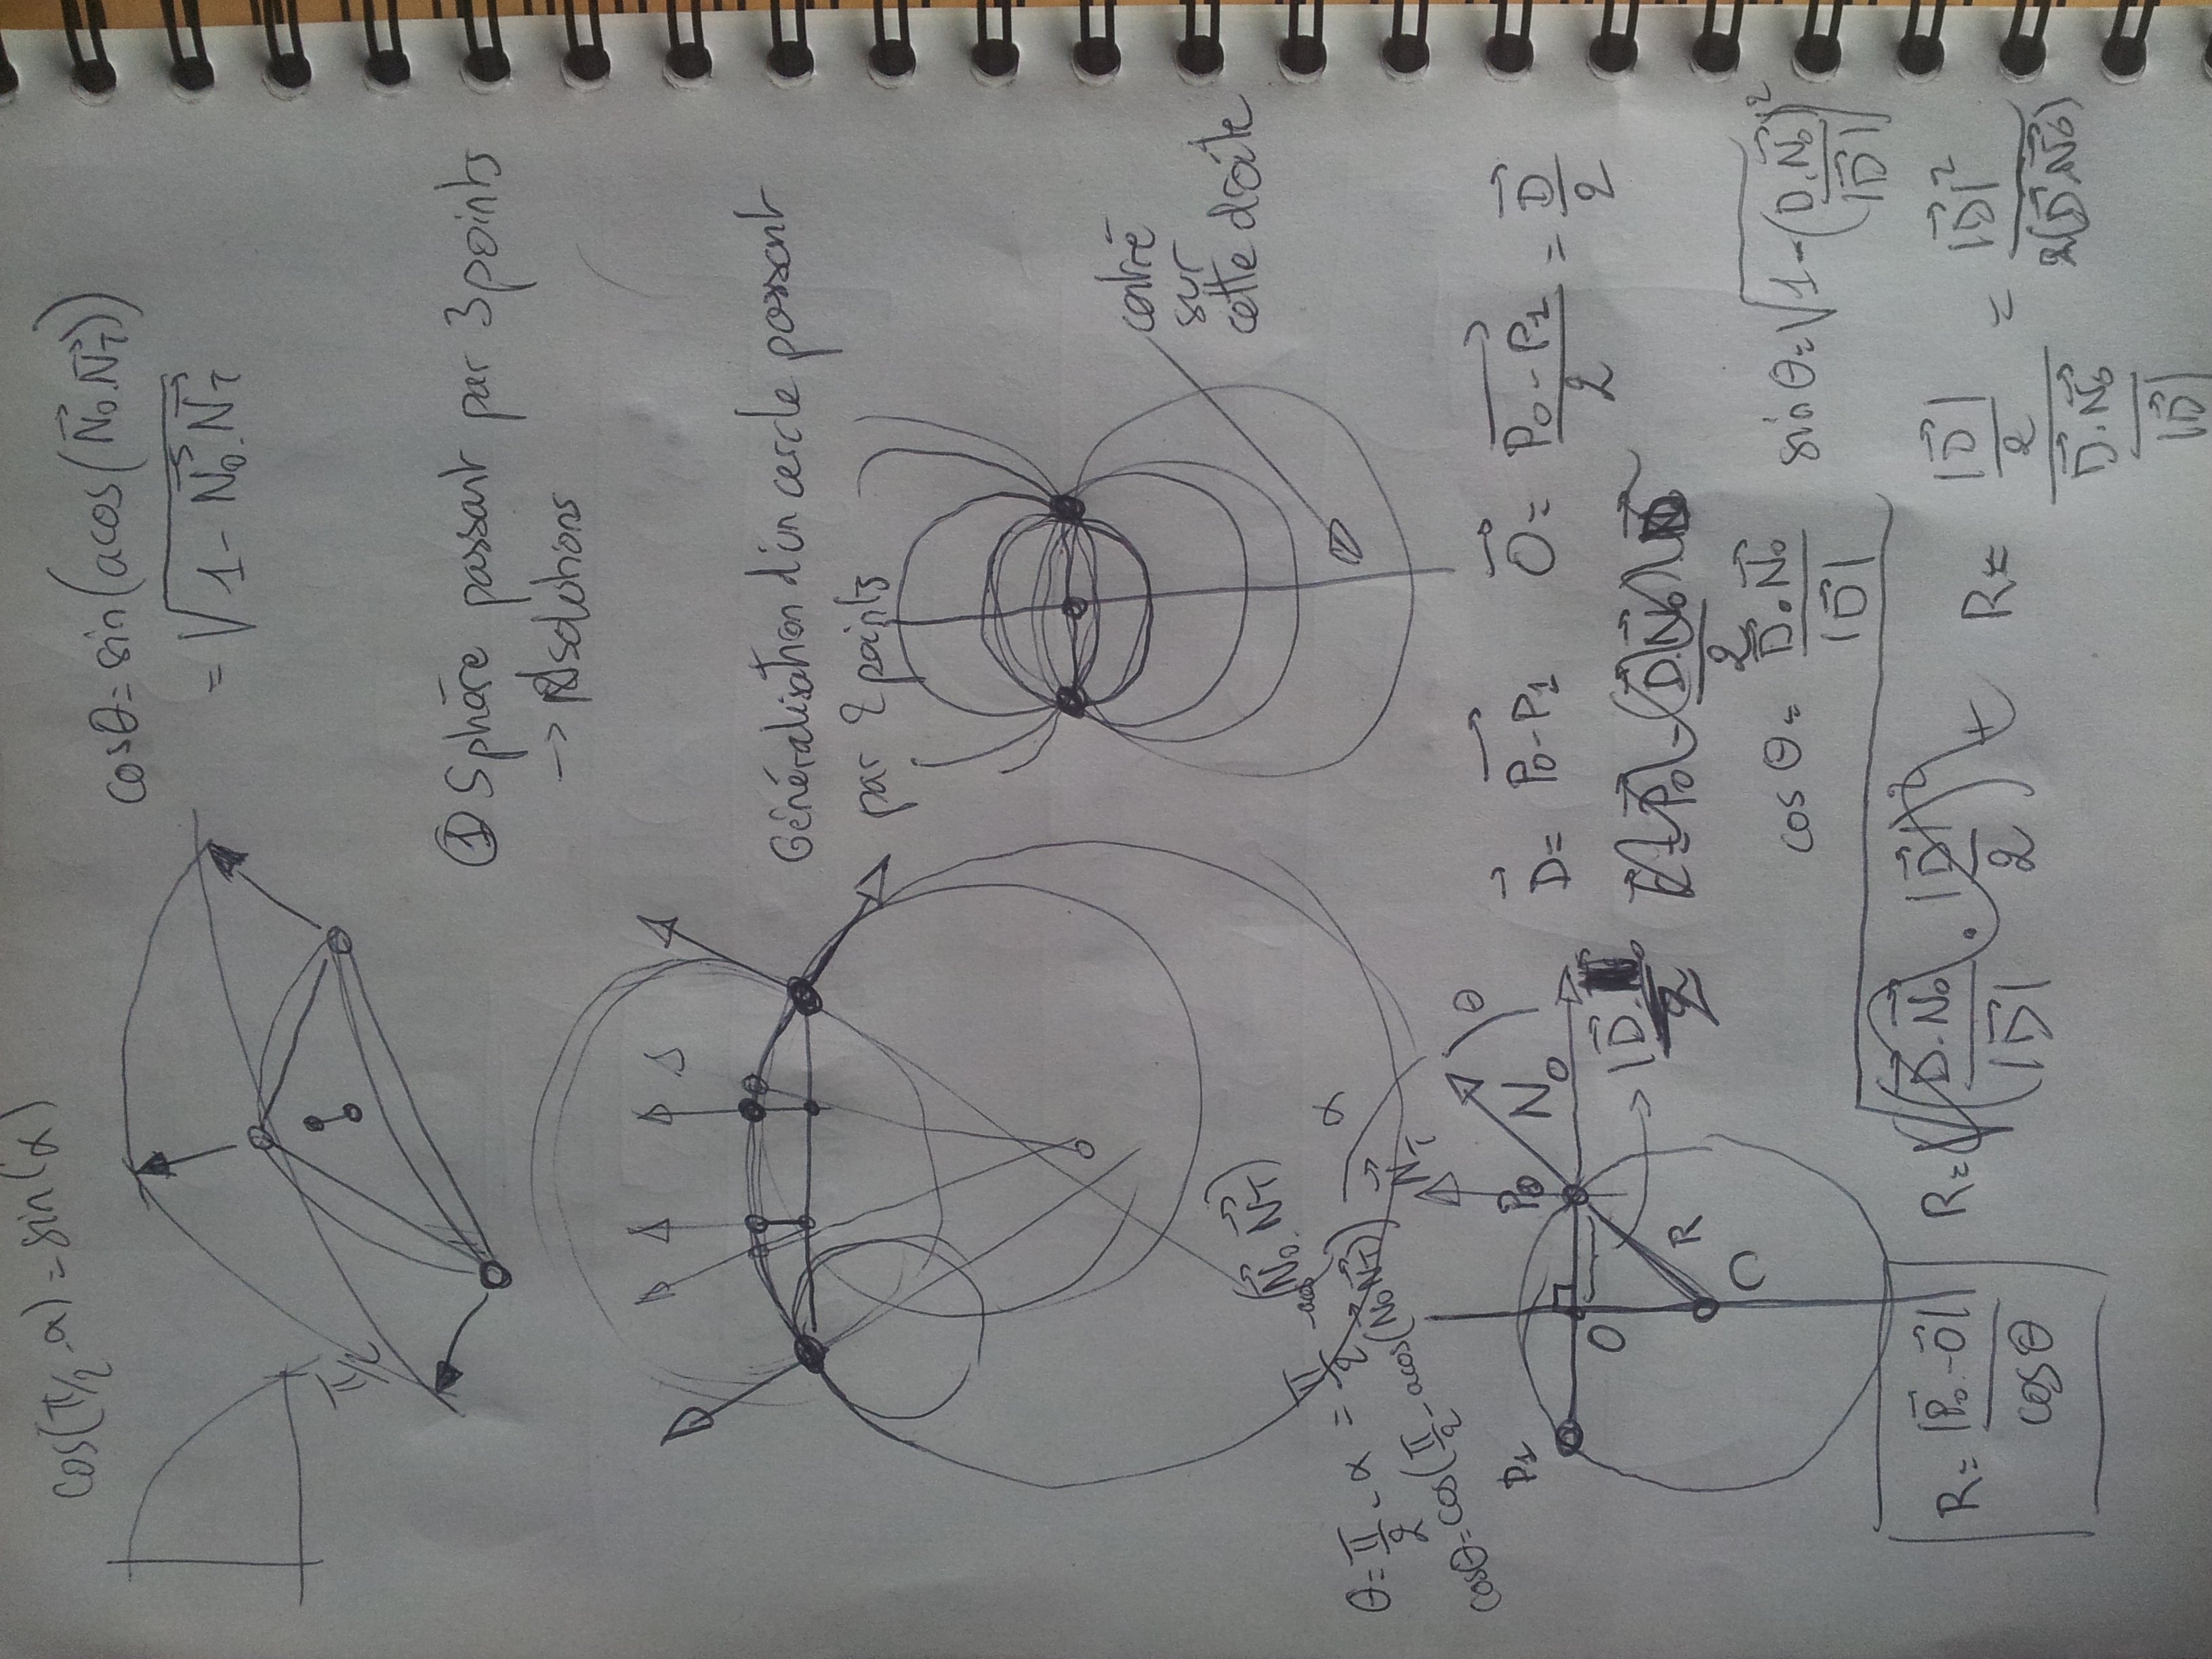 cos(π/2 - α) = sin(α)
cosθ = sin(acos(N₀⃗.N_T⃗))
= √(1 - N₀⃗.N_T⃗)
π/2
① Sphère passant par 3 points
→ solutions
Généralisation d'un cercle passant
par 2 points
centré
sur
cette droite
θ = π/2 - α = π/2 - acos(N₀⃗.N_T⃗)
cosθ = cos(π/2 - acos(N₀⃗N_T⃗))
α
N_T⃗
θ
P₁
P₀
N₀
O
R
C
|D⃗.N⃗₀
2
D⃗ = P₀-P₁ O⃗ = (P₀-P₁)/2 = D⃗/2
cosθ = D⃗.N₀⃗/|D⃗| sinθ = √(1-(D.N₀⃗/|D⃗|)²)
R = |P₀⃗-O⃗|/cosθ R = √((D⃗.N₀⃗/|D⃗| . |D⃗|/2)² + R = (|D⃗|/2)/(D⃗.N₀⃗/|D⃗|) = |D⃗|²/2(D⃗.N₀⃗)